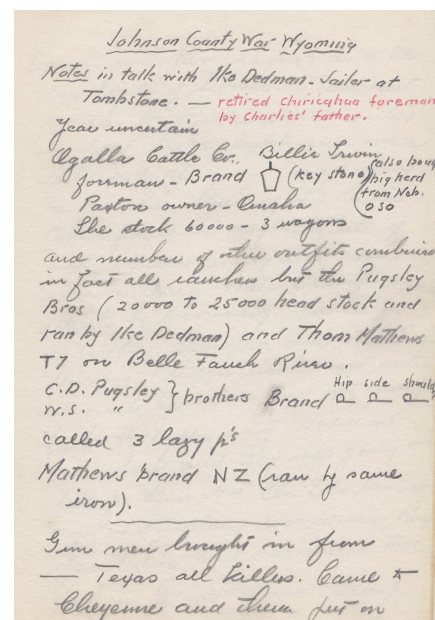 Johnson County War Wyoming
Notes in talk with Ike Dedman - Jailer at
Tombstone. — retired Chiricahua foreman
by Charlies' father.
Year uncertain
Ogalla Cattle Co. Billie Irwin
foreman - Brand (key stone) (also boug
big herd
from Neb.
OSO
Paxton owner - Omaha
The stock 60000 - 3 wagons
and number of other outfits combined
in fact all ranches but the Pugsley
Bros (20000 to 25000 head stock and
ran by Ike Dedman) and Thom Mathews
T7 on Belle Fauch River.
C.D. Pugsley } brothers Brand Hip side should
W.S. "
called 3 lazy p's
Mathews brand NZ (ran by same
iron).
Gun men brought in from
— Texas all killers. Came
Cheyenne and them put on